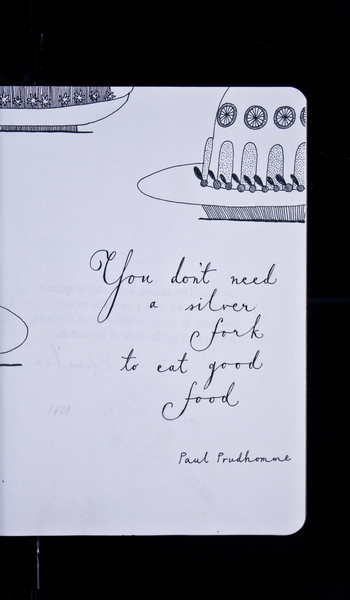 You don't need
a silver
fork
to eat good
food
Paul Prudhomme